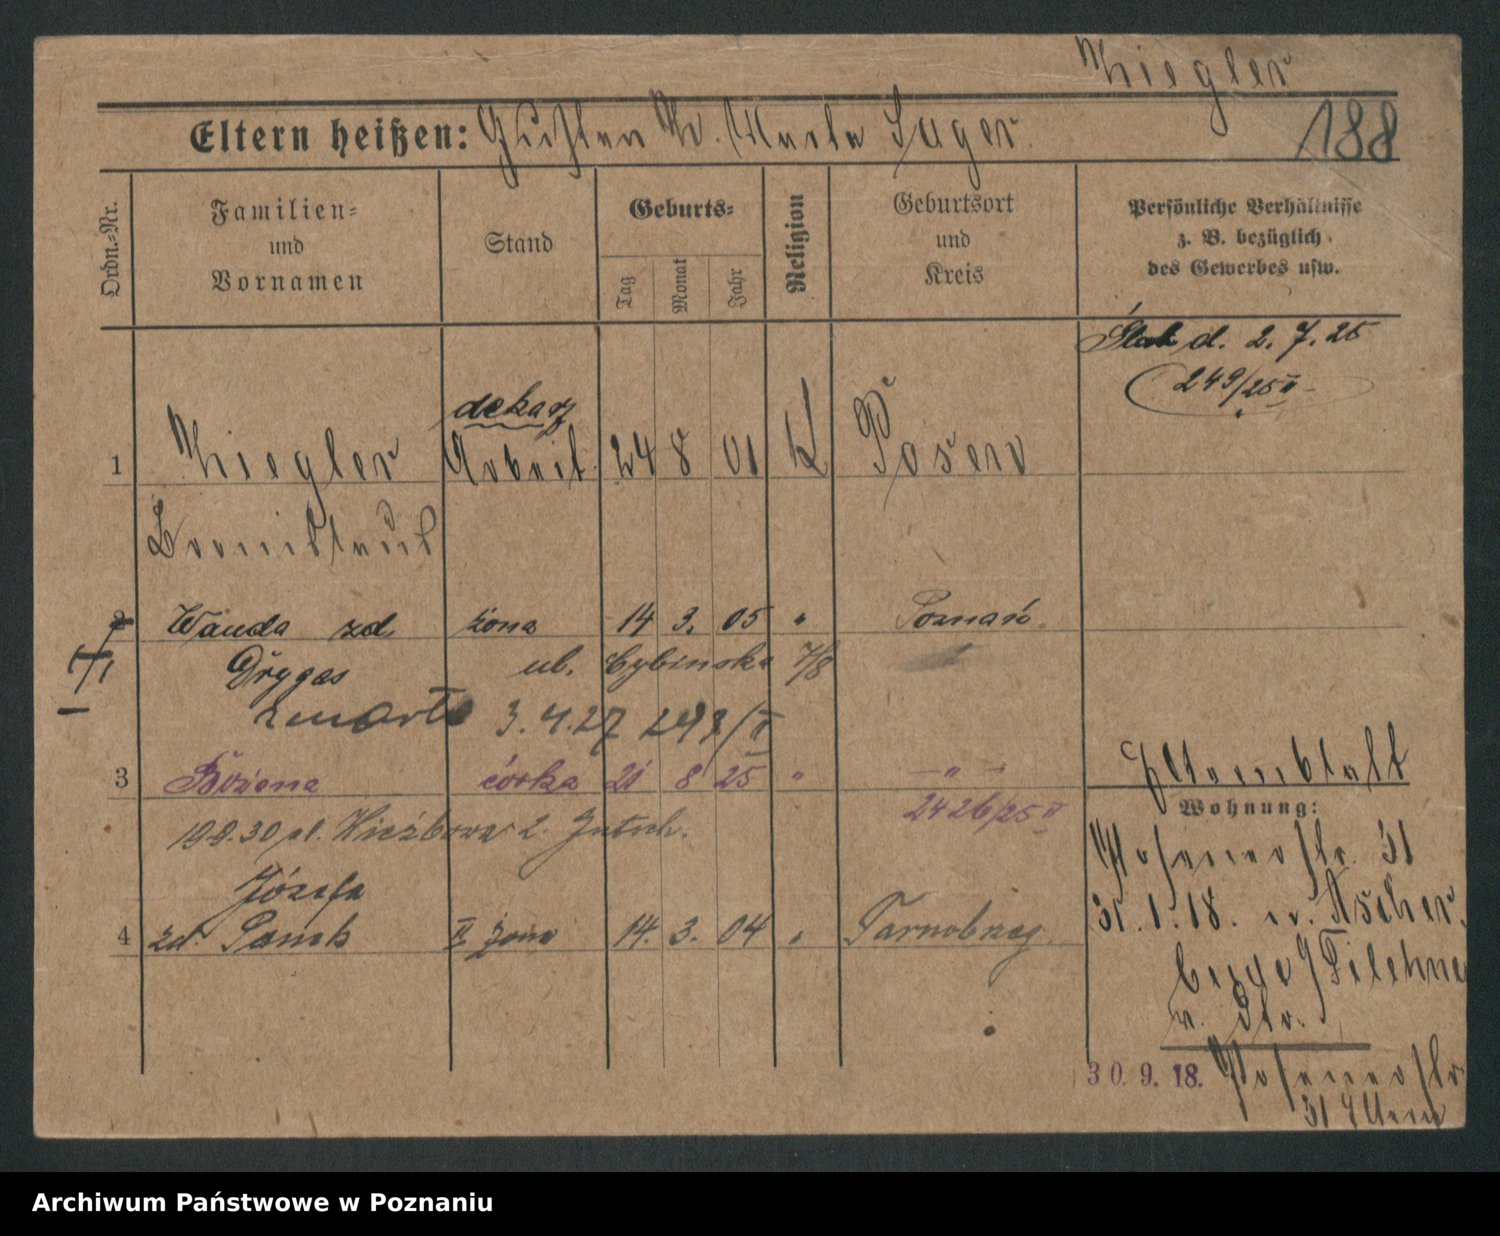 Ziegler
188
Eltern heißen: Gustav u. Maria Jager.
Ordn.-Nr.
Familien-
und
Vornamen
Stand
Geburts-
Tag
Monat
Jahr
Religion
Geburtsort
und
Kreis
Persönliche Verhältnisse
z. B. bezüglich
des Gewerbes usw.
Ślub d. 2. 7. 25
249/25 II
dekarz
1 Ziegler Arbeit. 24 8 01 K Posen
Bronislaus
2 Wanda zd. żona 14 3. 05 " Poznań
Drygas ul. Cybinska 7/8
zmarła 3. 4. 27 /II
3 Bożena córka 21 8 25 " — " —
2426/25 II
Wohnung:
19.9.30 pl. 2.
Posenerstr. 31
Józefa
31.1.18. v.
4 zd. II żona 14. 3. 04 " Tarnobrzeg.
Filehne
v. Str.
30. 9. 18. Posenerstr.
31
Archiwum Państwowe w Poznaniu